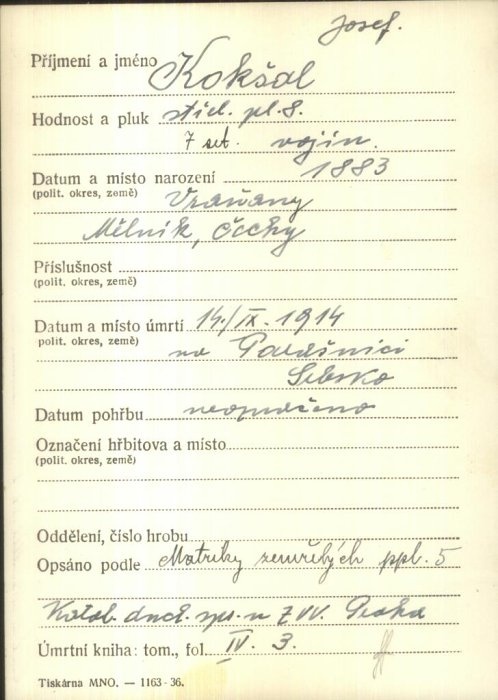 Josef.
Příjmení a jméno Kokšal
Hodnost a pluk střel. pl. 8.
7 set. vojín.
Datum a místo narození 1883
(polit. okres, země) Vraňany
Mělník, Čechy
Příslušnost
(polit. okres, země)
Datum a místo úmrtí 14./IX. 1914
polit. okres, země) na Parašnici
Srbsko
Datum pohřbu neoznačeno
Označení hřbitova a místo
(polit. okres, země)
Oddělení, číslo hrobu
Opsáno podle Matriky zemřelých ppl. 5
duch. spr. u ZVV. Praha
Úmrtní kniha: tom., fol. IV. 3.
Tiskárna MNO. — 1163-36.